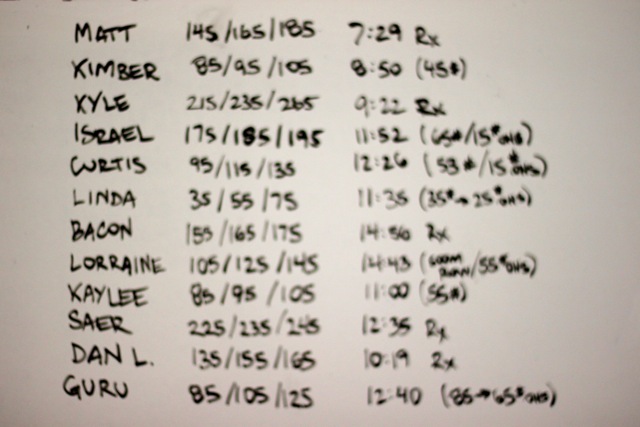 MATT 145/165/185 7:29 Rx
KIMBER 85/95/105 8:50 (45#)
KYLE 215/235/265 9:22 Rx
ISRAEL 175/185/195 11:52 (65#/15# OHS)
CURTIS 95/115/135 12:26 (53#/15# OHS)
LINDA 35/55/75 11:35 (35#→25# OHS)
BACON 155/165/175 14:56 Rx
LORRAINE 105/125/145 14:43 (600M RUN/55# OHS)
KAYLEE 85/95/105 11:00 (55#)
SAER 225/235/245 12:35 Rx
DAN L. 135/155/165 10:19 Rx
GURU 85/105/125 12:40 (85→65# OHS)